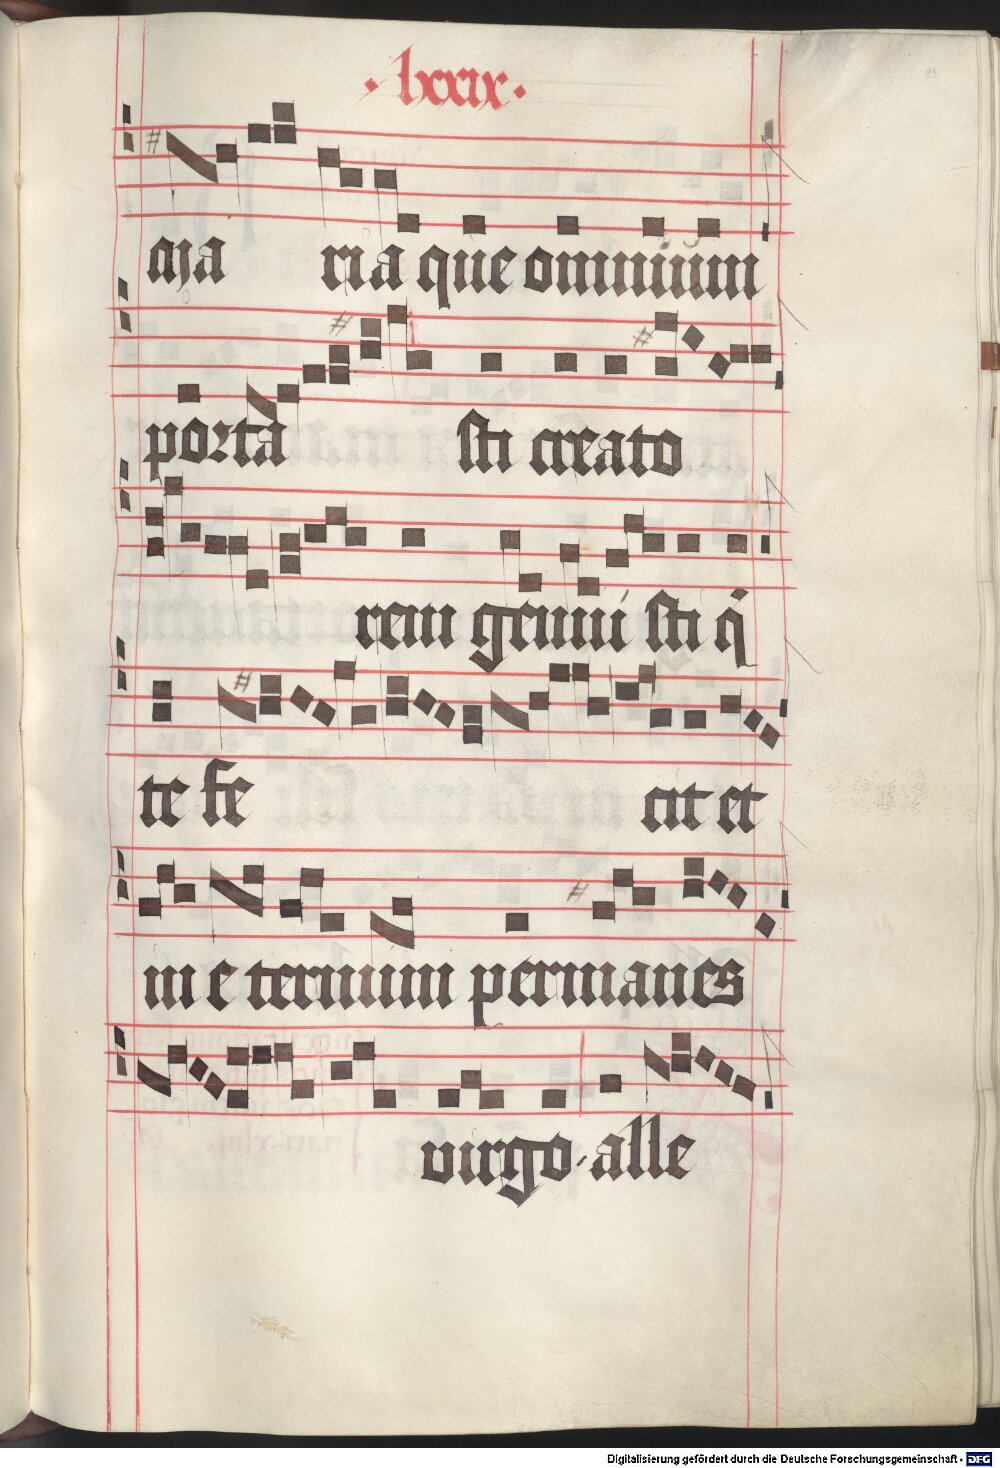 · lxxix ·
aja ria que omnium
porta sti creato
rem genui sti q̄
te fe cit et
in e ternum permanes
virgo · alle
Digitalisierung gefördert durch die Deutsche Forschungsgemeinschaft - DFG